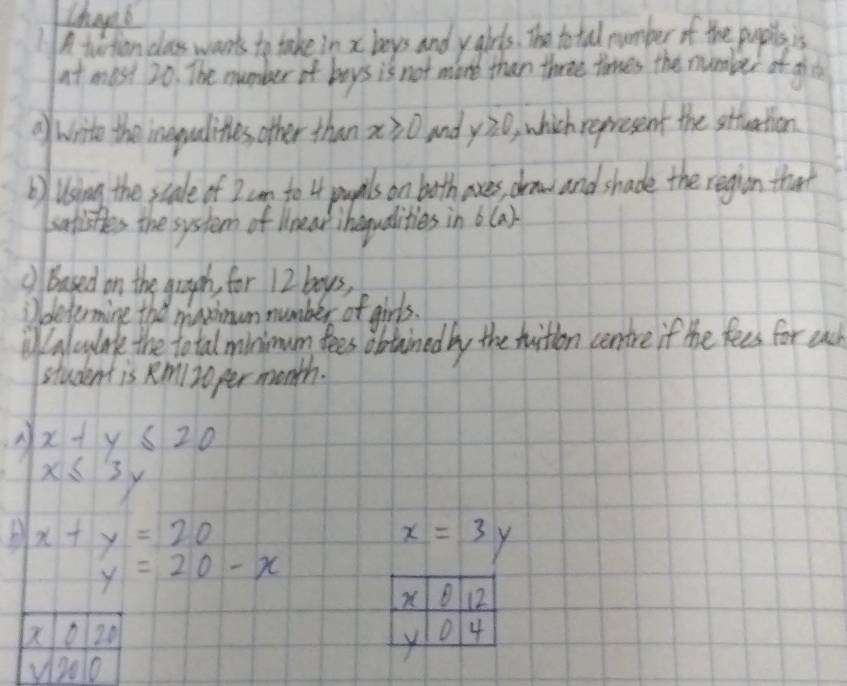 Chapt 6
1. A tuition class wants to take in x boys and y girls. The total number of the pupils is
at most 20. The number of boys is not more than three times the number of girls
a) Write the inequalities, other than x ≥ 0 and y ≥ 0, which represent the situation.
b) Using the scale of 2 cm to 4 pupils on both axes, draw and shade the region that
satisfies the system of linear inequalities in 6(a).
c) Based on the graph, for 12 boys,
i) determine the maximum number of girls.
ii) Calculate the total minimum fees obtained by the tuition centre if the fees for each
student is RM120 per month.
a) x + y ≤ 20
x ≤ 3y
b) x + y = 20 x = 3y
y = 20 - x
x 0 12
y 0 4
x 0 20
y 20 0